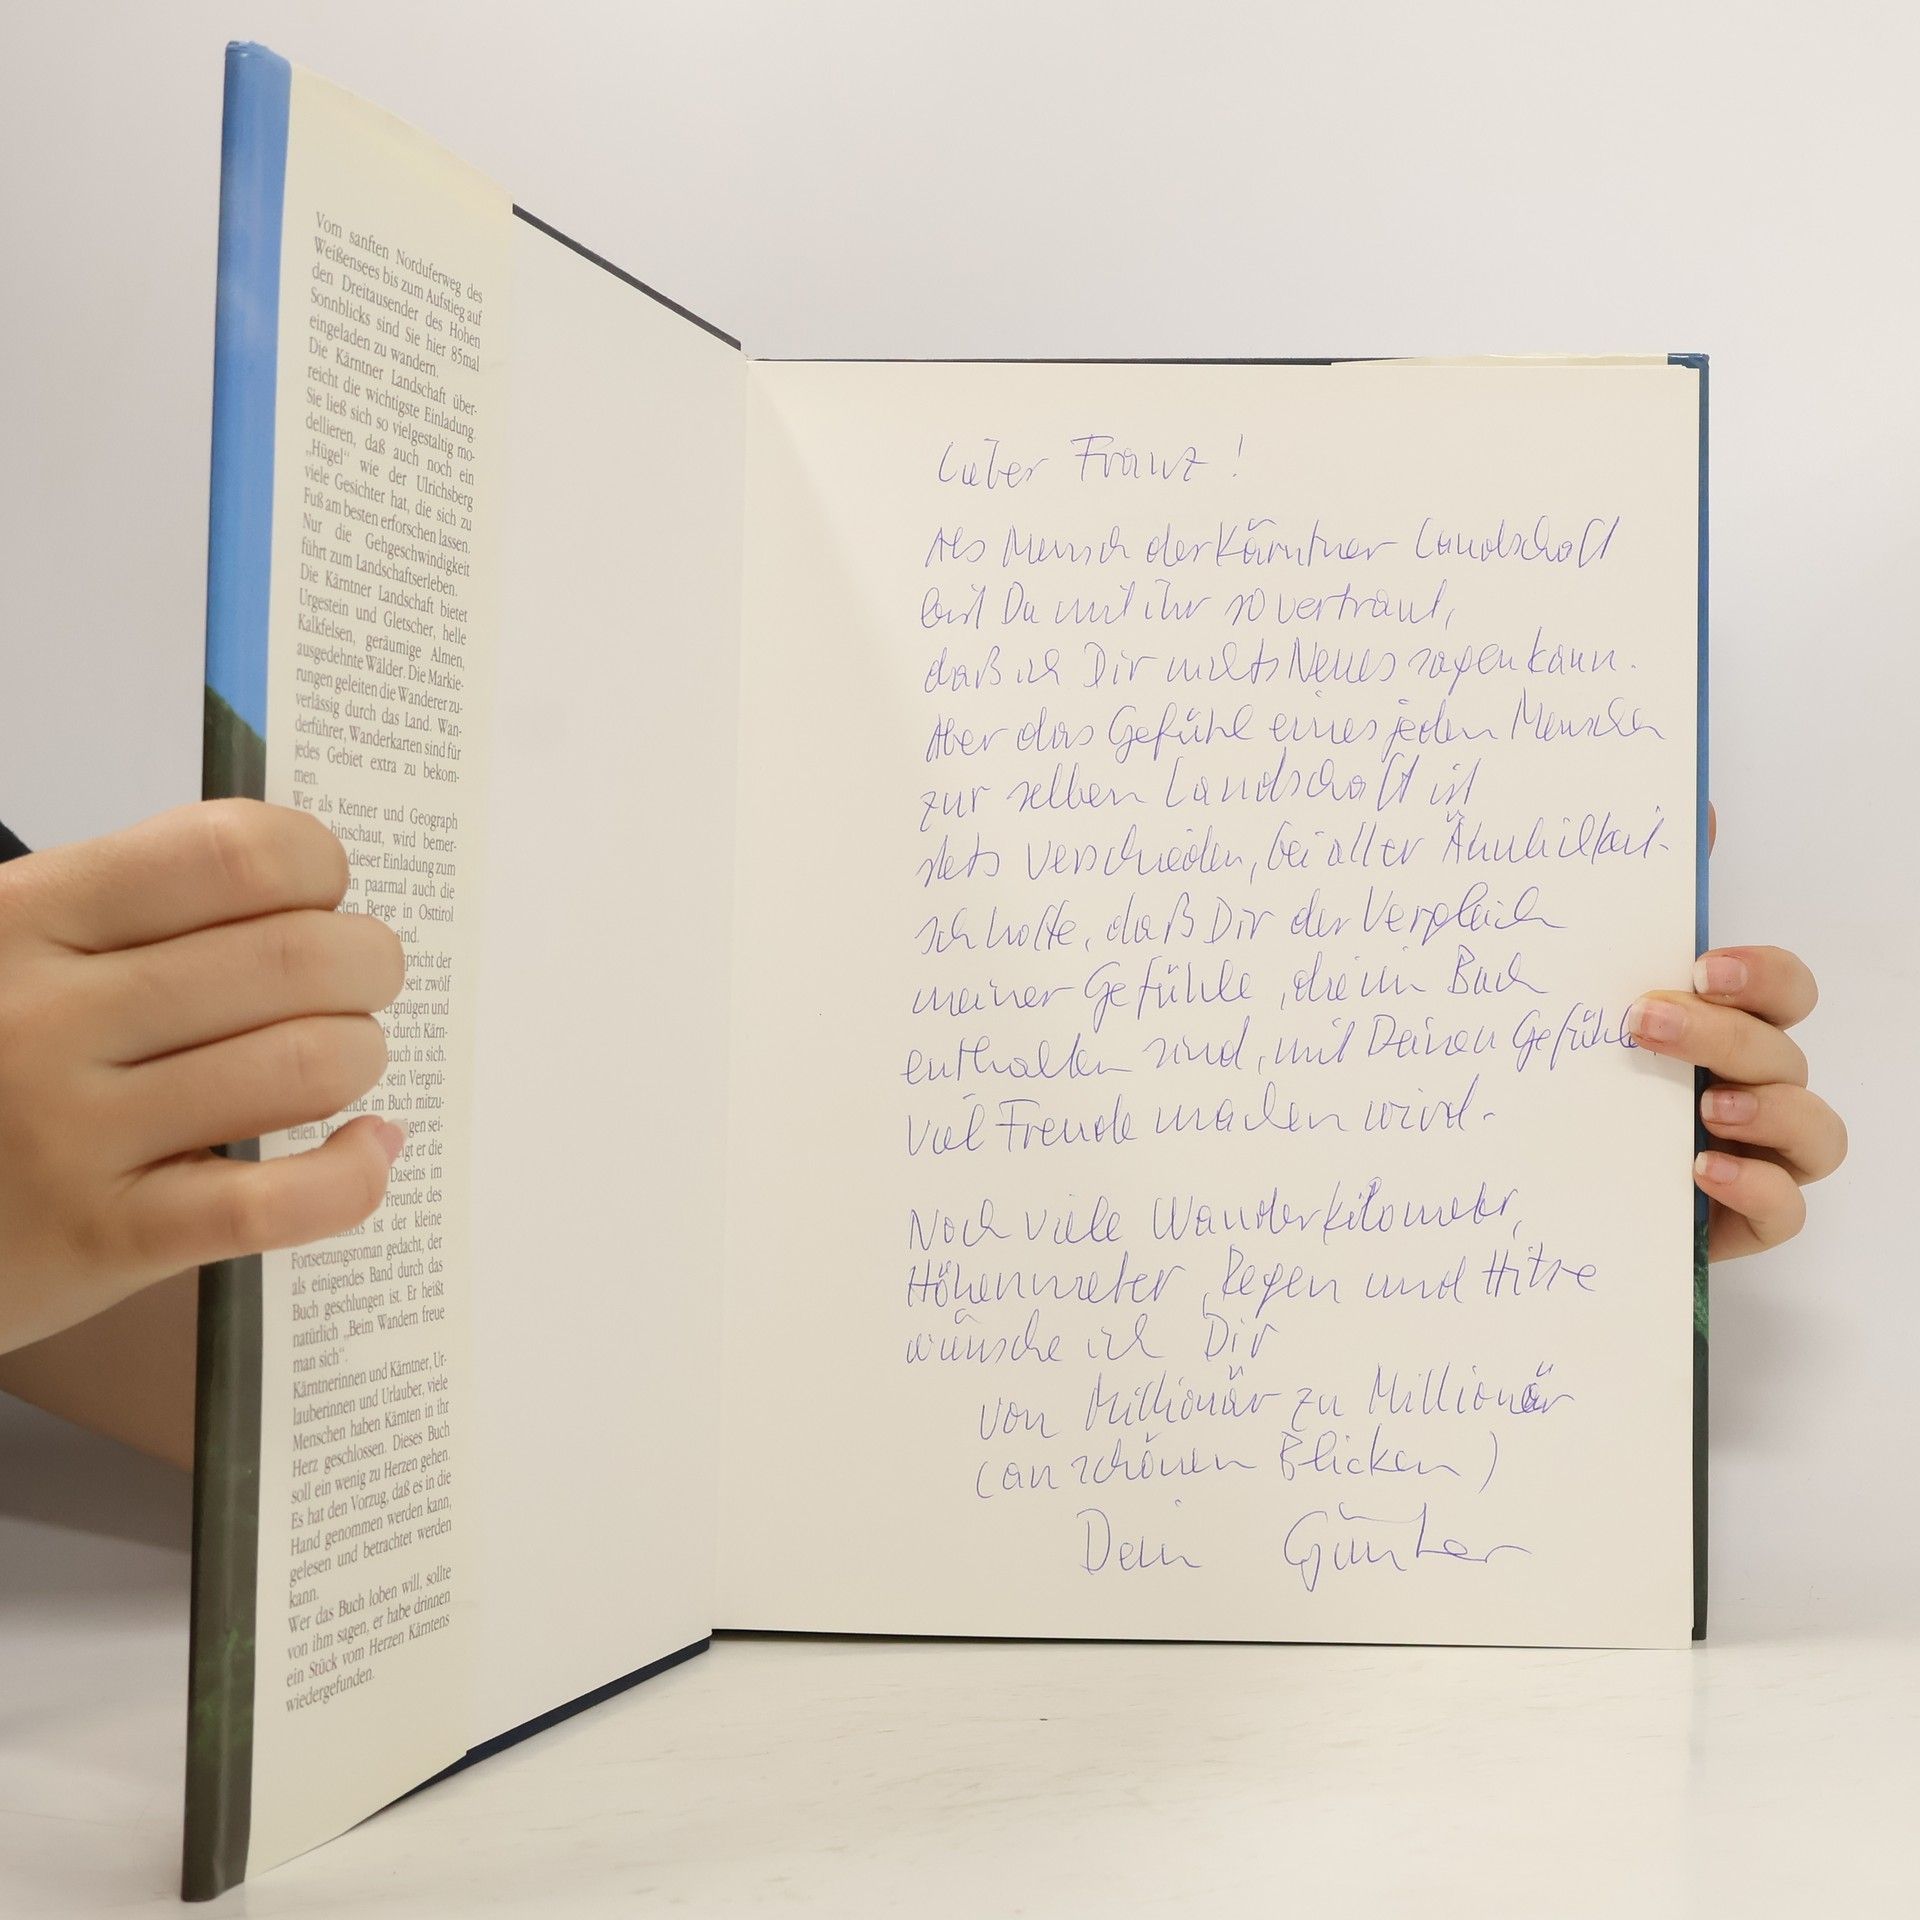 Vom sanften Norduferweg des
Weißensees bis zum Aufstieg auf
den Dreitausender des Hohen
Sonnblicks sind Sie hier 85mal
eingeladen zu wandern.
Die Kärntner Landschaft über-
reicht die wichtigste Einladung.
Sie ließ sich so vielgestaltig mo-
dellieren, daß auch noch ein
„Hügel“ wie der Ulrichsberg
viele Gesichter hat, die sich zu
Fuß am besten erforschen lassen.
Nur die Gehgeschwindigkeit
führt zum Landschaftserleben.
Die Kärntner Landschaft bietet
Urgestein und Gletscher, helle
Kalkfelsen, geräumige Almen,
ausgedehnte Wälder. Die Markie-
rungen geleiten die Wanderer zu-
verlässig durch das Land. Wan-
derführer, Wanderkarten sind für
jedes Gebiet extra zu bekom-
men.
Wer als Kenner und Geograph
hinschaut, wird bemer-
dieser Einladung zum
paarmal auch die
Berge in Osttirol
sind.
spricht der
seit zwölf
Vergnügen und
durch Kärn-
auch in sich.
sein Vergnü-
im Buch mitzu-
teilen.
sei-
er die
Daseins im
Freunde des
ist der kleine
Fortsetzungsroman gedacht, der
als einigendes Band durch das
Buch geschlungen ist. Er heißt
natürlich „Beim Wandern freue
man sich“.
Kärntnerinnen und Kärntner, Ur-
lauberinnen und Urlauber, viele
Menschen haben Kärnten in ihr
Herz geschlossen. Dieses Buch
soll ein wenig zu Herzen gehen.
Es hat den Vorzug, daß es in die
Hand genommen werden kann,
gelesen und betrachtet werden
kann.
Wer das Buch loben will, sollte
von ihm sagen, er habe drinnen
ein Stück vom Herzen Kärntens
wiedergefunden.
Lieber Franz!
Als Mensch der Kärntner Landschaft
bist Du mit ihr so vertraut,
daß ich Dir nichts Neues sagen kann.
Aber das Gefühl eines jeden Menschen
zur selben Landschaft ist
stets verschieden, bei aller Ähnlichkeit.
Ich hoffe, daß Dir der Vergleich
meiner Gefühle, die im Buch
enthalten sind, mit Deinen Gefühlen
viel Freude machen wird.
Noch viele Wanderkilometer,
Höhenmeter, Regen und Hitze
wünsche ich Dir
von Millionär zu Millionär
(an schönen Blicken)
Dein Günther